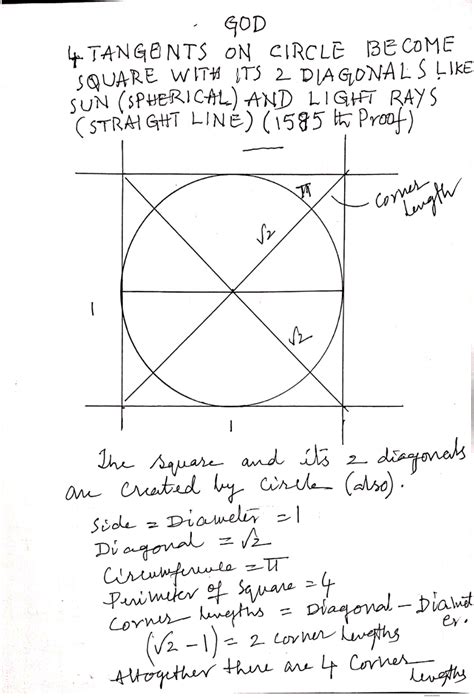 GOD
4 TANGENTS ON CIRCLE BECOME
SQUARE WITH ITS 2 DIAGONALS LIKE
SUN (SPHERICAL) AND LIGHT RAYS
(STRAIGHT LINE) (1585 th Proof)
π
Corner
Length
√2
√2
1
1
The square and its 2 diagonals
are created by circle (also).
Side = Diameter = 1
Diagonal = √2
Circumference = π
Perimeter of Square = 4
Corner lengths = Diagonal - Diamet
er.
(√2 - 1) = 2 corner lengths
Altogether there are 4 corner
lengths